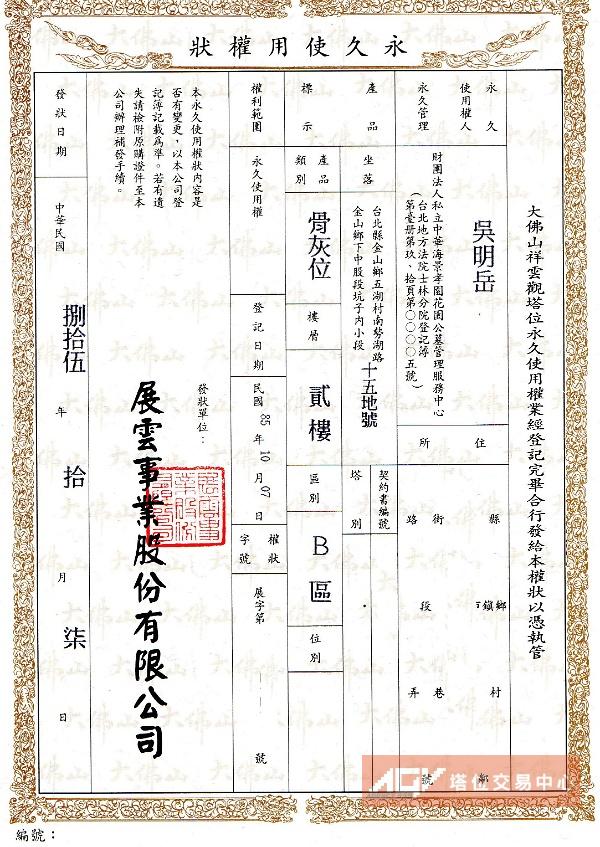 永久使用權狀
大佛山祥雲觀塔位永久使用權業經登記完畢合行發給本權狀以憑執管
永久使用權人
吳明岳
住所
縣
鄉鎮
村
鄰
街
路
段
巷
弄
號
永久管理
財團法人私立中華海景孝園花園公墓管理服務中心
(台北地方法院士林分院登記簿
第壹冊第玖、拾頁第〇〇〇〇五號)
產品標示
坐落
台北縣金山鄉五湖村南勢湖路
金山鄉下中股段坑子內小段
十五地號
契約書編號
塔別
產品類別
骨灰位
樓層
貳樓
區別
B區
位別
權利範圍
永久使用權
登記日期
民國85年10月07日
權狀字號
展字第
號
本永久使用權狀內容是
否有變更,以本公司登
記簿記載為準。若有遺
失請檢附原購證件至本
公司辦理補發手續。
發狀單位:
展雲事業股份有限公司
發狀日期
中華民國
捌拾伍年拾月柒日
編號:
AGV 塔位交易中心
大佛山